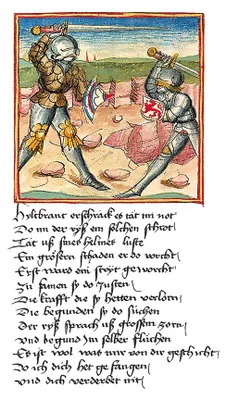 Hyltbrant erschrack es tät im not
Do im der ryß ein solchen schrot
Tät uß sines helmes luste
Ein grösern schaden er do worcht
Erst ward ein stryt geworcht
Zu samen sy do
Die krafft die sy hetten verlorn
Die begunden sy do suchen
Der ryß sprach uß grossem zorn
und begund Im selber fluchen
Es ist wol was mir von dir geschicht
Do ich dich het gefangen
und dich verderbet nit